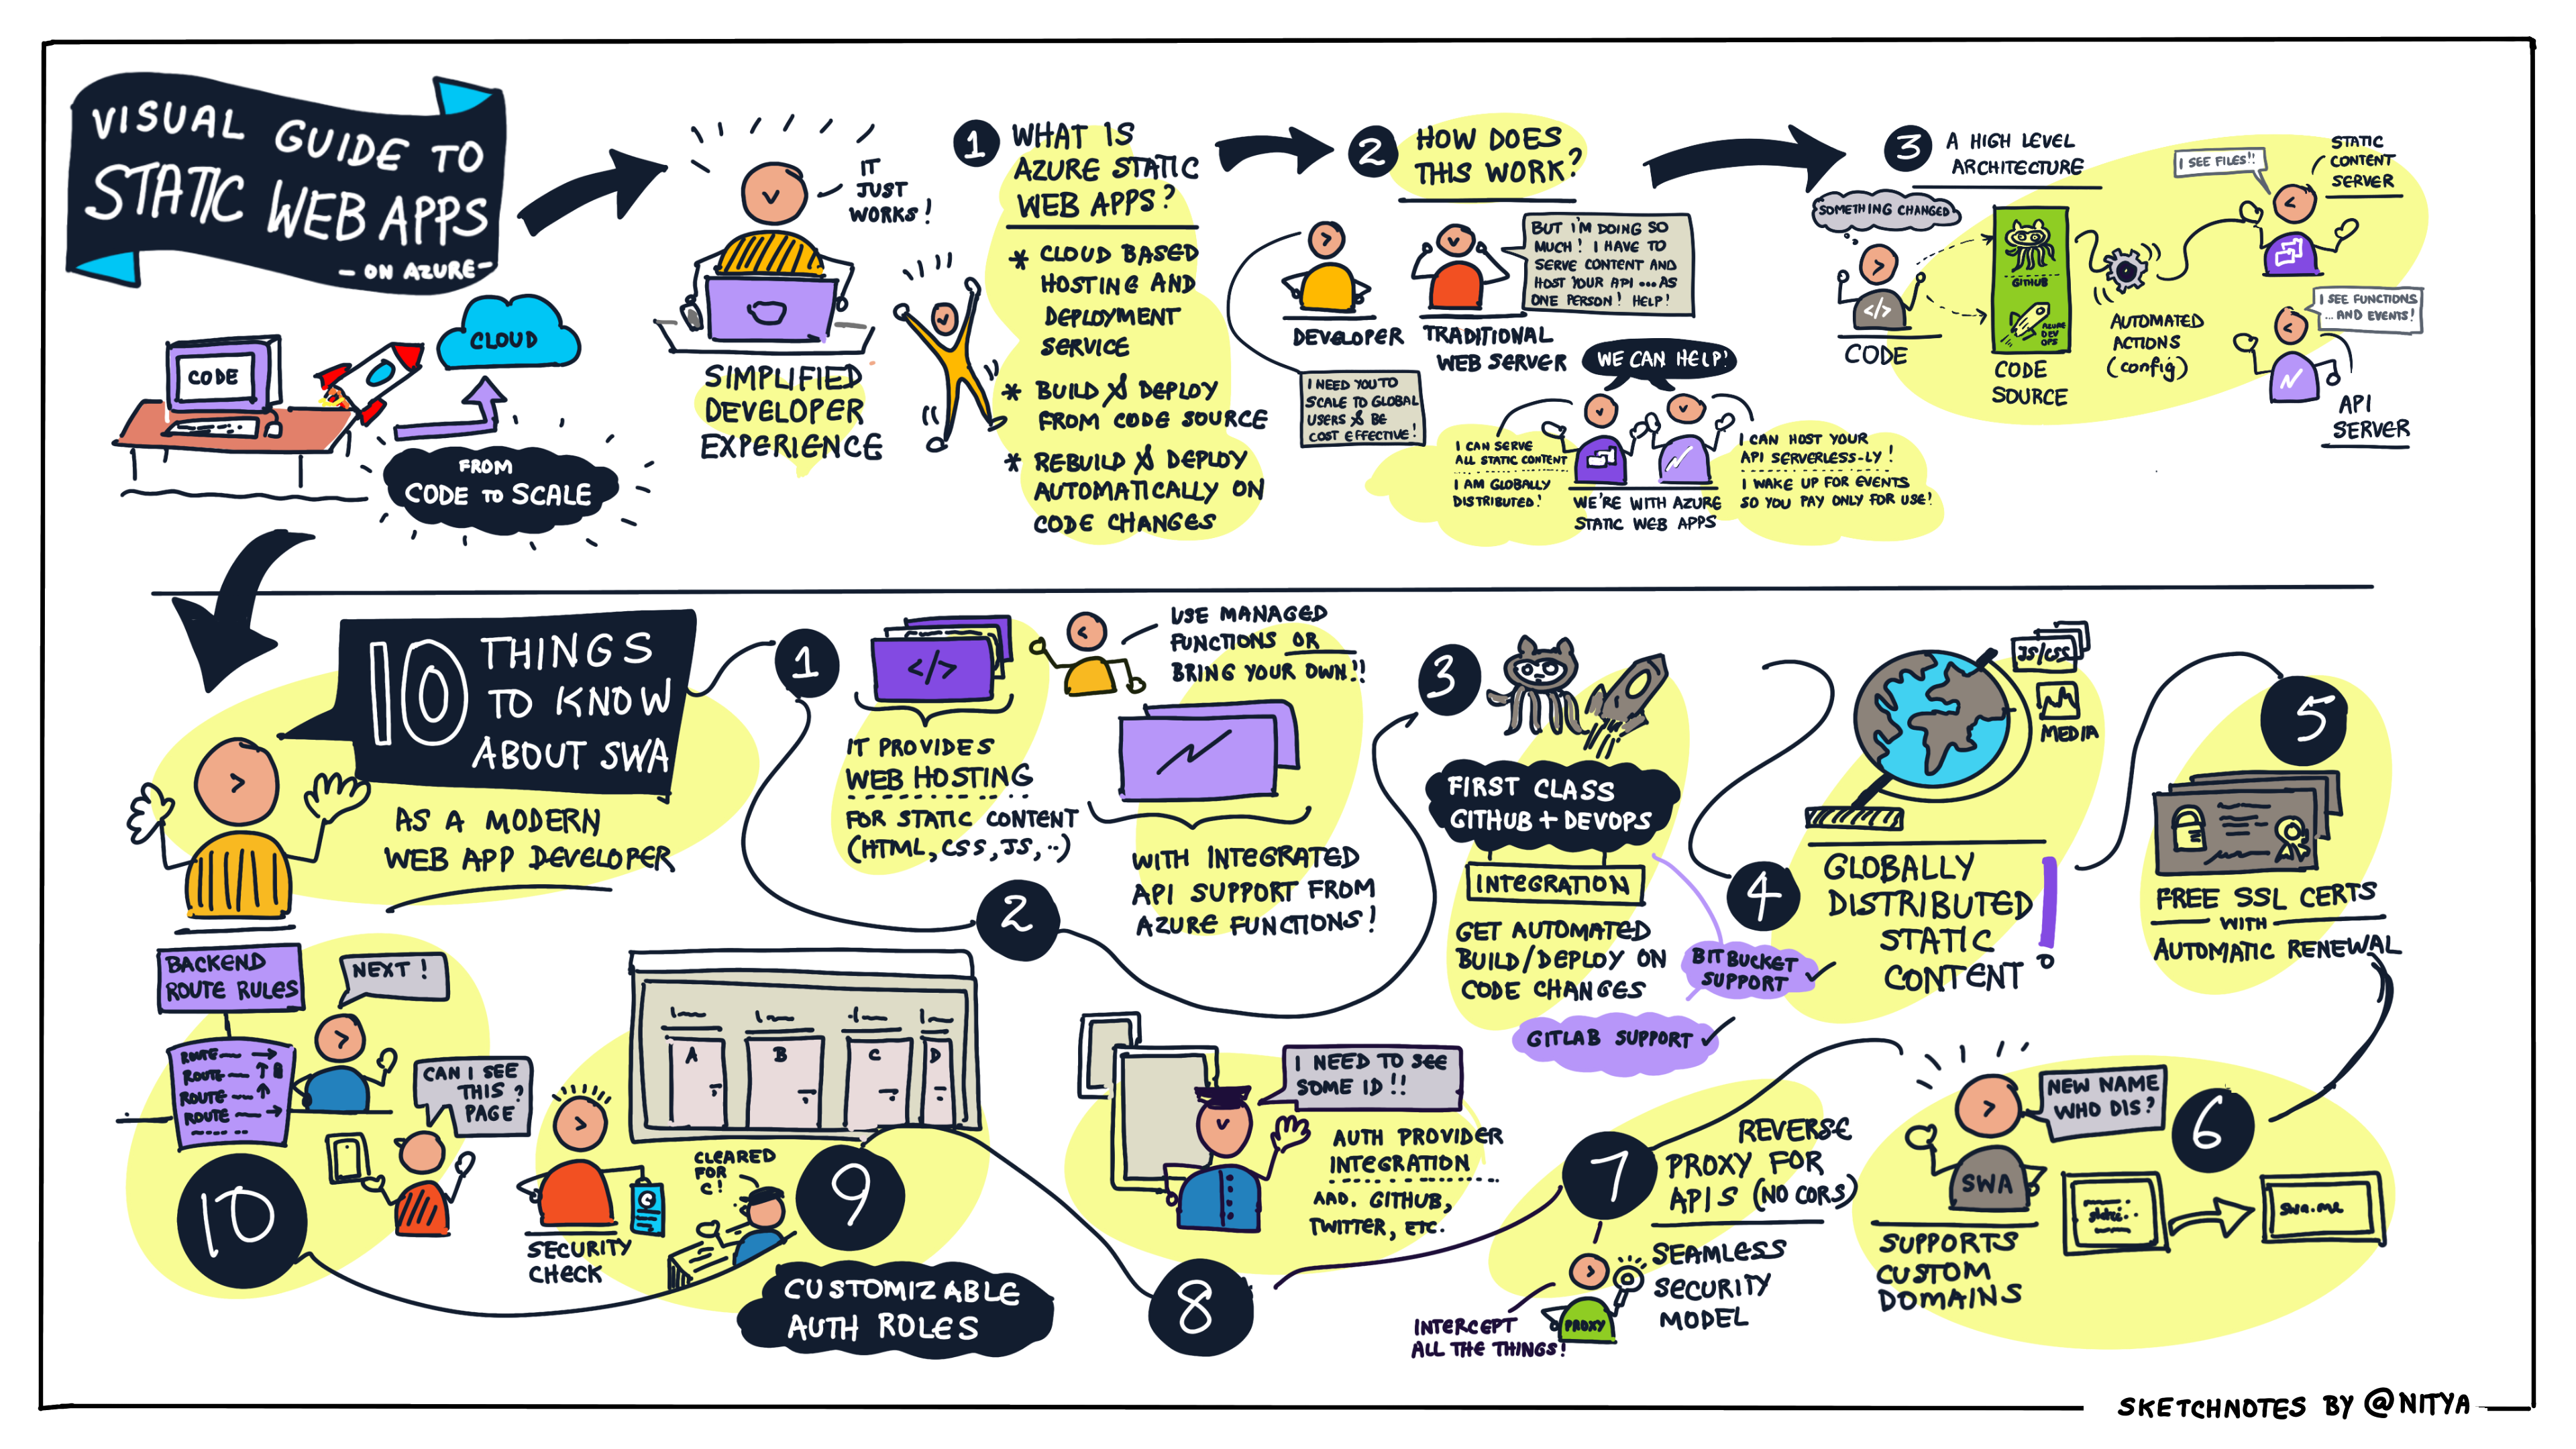 VISUAL GUIDE TO
STATIC WEB APPS
- ON AZURE -
CODE
CLOUD
FROM
CODE TO SCALE
IT
JUST
WORKS!
SIMPLIFIED
DEVELOPER
EXPERIENCE
1
WHAT IS
AZURE STATIC
WEB APPS?
* CLOUD BASED
HOSTING AND
DEPLOYMENT
SERVICE
* BUILD & DEPLOY
FROM CODE SOURCE
* REBUILD & DEPLOY
AUTOMATICALLY ON
CODE CHANGES
2
HOW DOES
THIS WORK?
DEVELOPER
I NEED YOU TO
SCALE TO GLOBAL
USERS & BE
COST EFFECTIVE!
TRADITIONAL
WEB SERVER
BUT I'M DOING SO
MUCH! I HAVE TO
SERVE CONTENT AND
HOST YOUR API ... AS
ONE PERSON! HELP!
WE CAN HELP!
I CAN SERVE
ALL STATIC CONTENT
I AM GLOBALLY
DISTRIBUTED!
WE'RE WITH AZURE
STATIC WEB APPS
I CAN HOST YOUR
API SERVERLESS-LY!
I WAKE UP FOR EVENTS
SO YOU PAY ONLY FOR USE!
3
A HIGH LEVEL
ARCHITECTURE
SOMETHING CHANGED
</>
CODE
GITHUB
AZURE
DEV
OPS
CODE
SOURCE
AUTOMATED
ACTIONS
(config)
I SEE FILES!!
STATIC
CONTENT
SERVER
I SEE FUNCTIONS
... AND EVENTS!
API
SERVER
10 THINGS
TO KNOW
ABOUT SWA
AS A MODERN
WEB APP DEVELOPER
1
</>
IT PROVIDES
WEB HOSTING
FOR STATIC CONTENT
(HTML, CSS, JS, ..)
2
USE MANAGED
FUNCTIONS OR
BRING YOUR OWN!!
WITH INTEGRATED
API SUPPORT FROM
AZURE FUNCTIONS!
3
FIRST CLASS
GITHUB + DEVOPS
INTEGRATION
GET AUTOMATED
BUILD/DEPLOY ON
CODE CHANGES
BITBUCKET
SUPPORT ✓
GITLAB SUPPORT ✓
4
JS/CSS
MEDIA
GLOBALLY
DISTRIBUTED
STATIC
CONTENT!
5
FREE SSL CERTS
WITH
AUTOMATIC RENEWAL
6
NEW NAME
WHO DIS?
SWA
SUPPORTS
CUSTOM
DOMAINS
swa.me
7
REVERSE
PROXY FOR
APIS (NO CORS)
SEAMLESS
SECURITY
MODEL
PROXY
INTERCEPT
ALL THE THINGS!
8
I NEED TO SEE
SOME ID!!
AUTH PROVIDER
INTEGRATION
AAD, GITHUB,
TWITTER, ETC.
9
A B C D
SECURITY
CHECK
CLEARED
FOR
C!
CUSTOMIZABLE
AUTH ROLES
10
BACKEND
ROUTE RULES
ROUTE
ROUTE
ROUTE
ROUTE
NEXT!
CAN I SEE
THIS ?
PAGE
SKETCHNOTES BY @NITYA